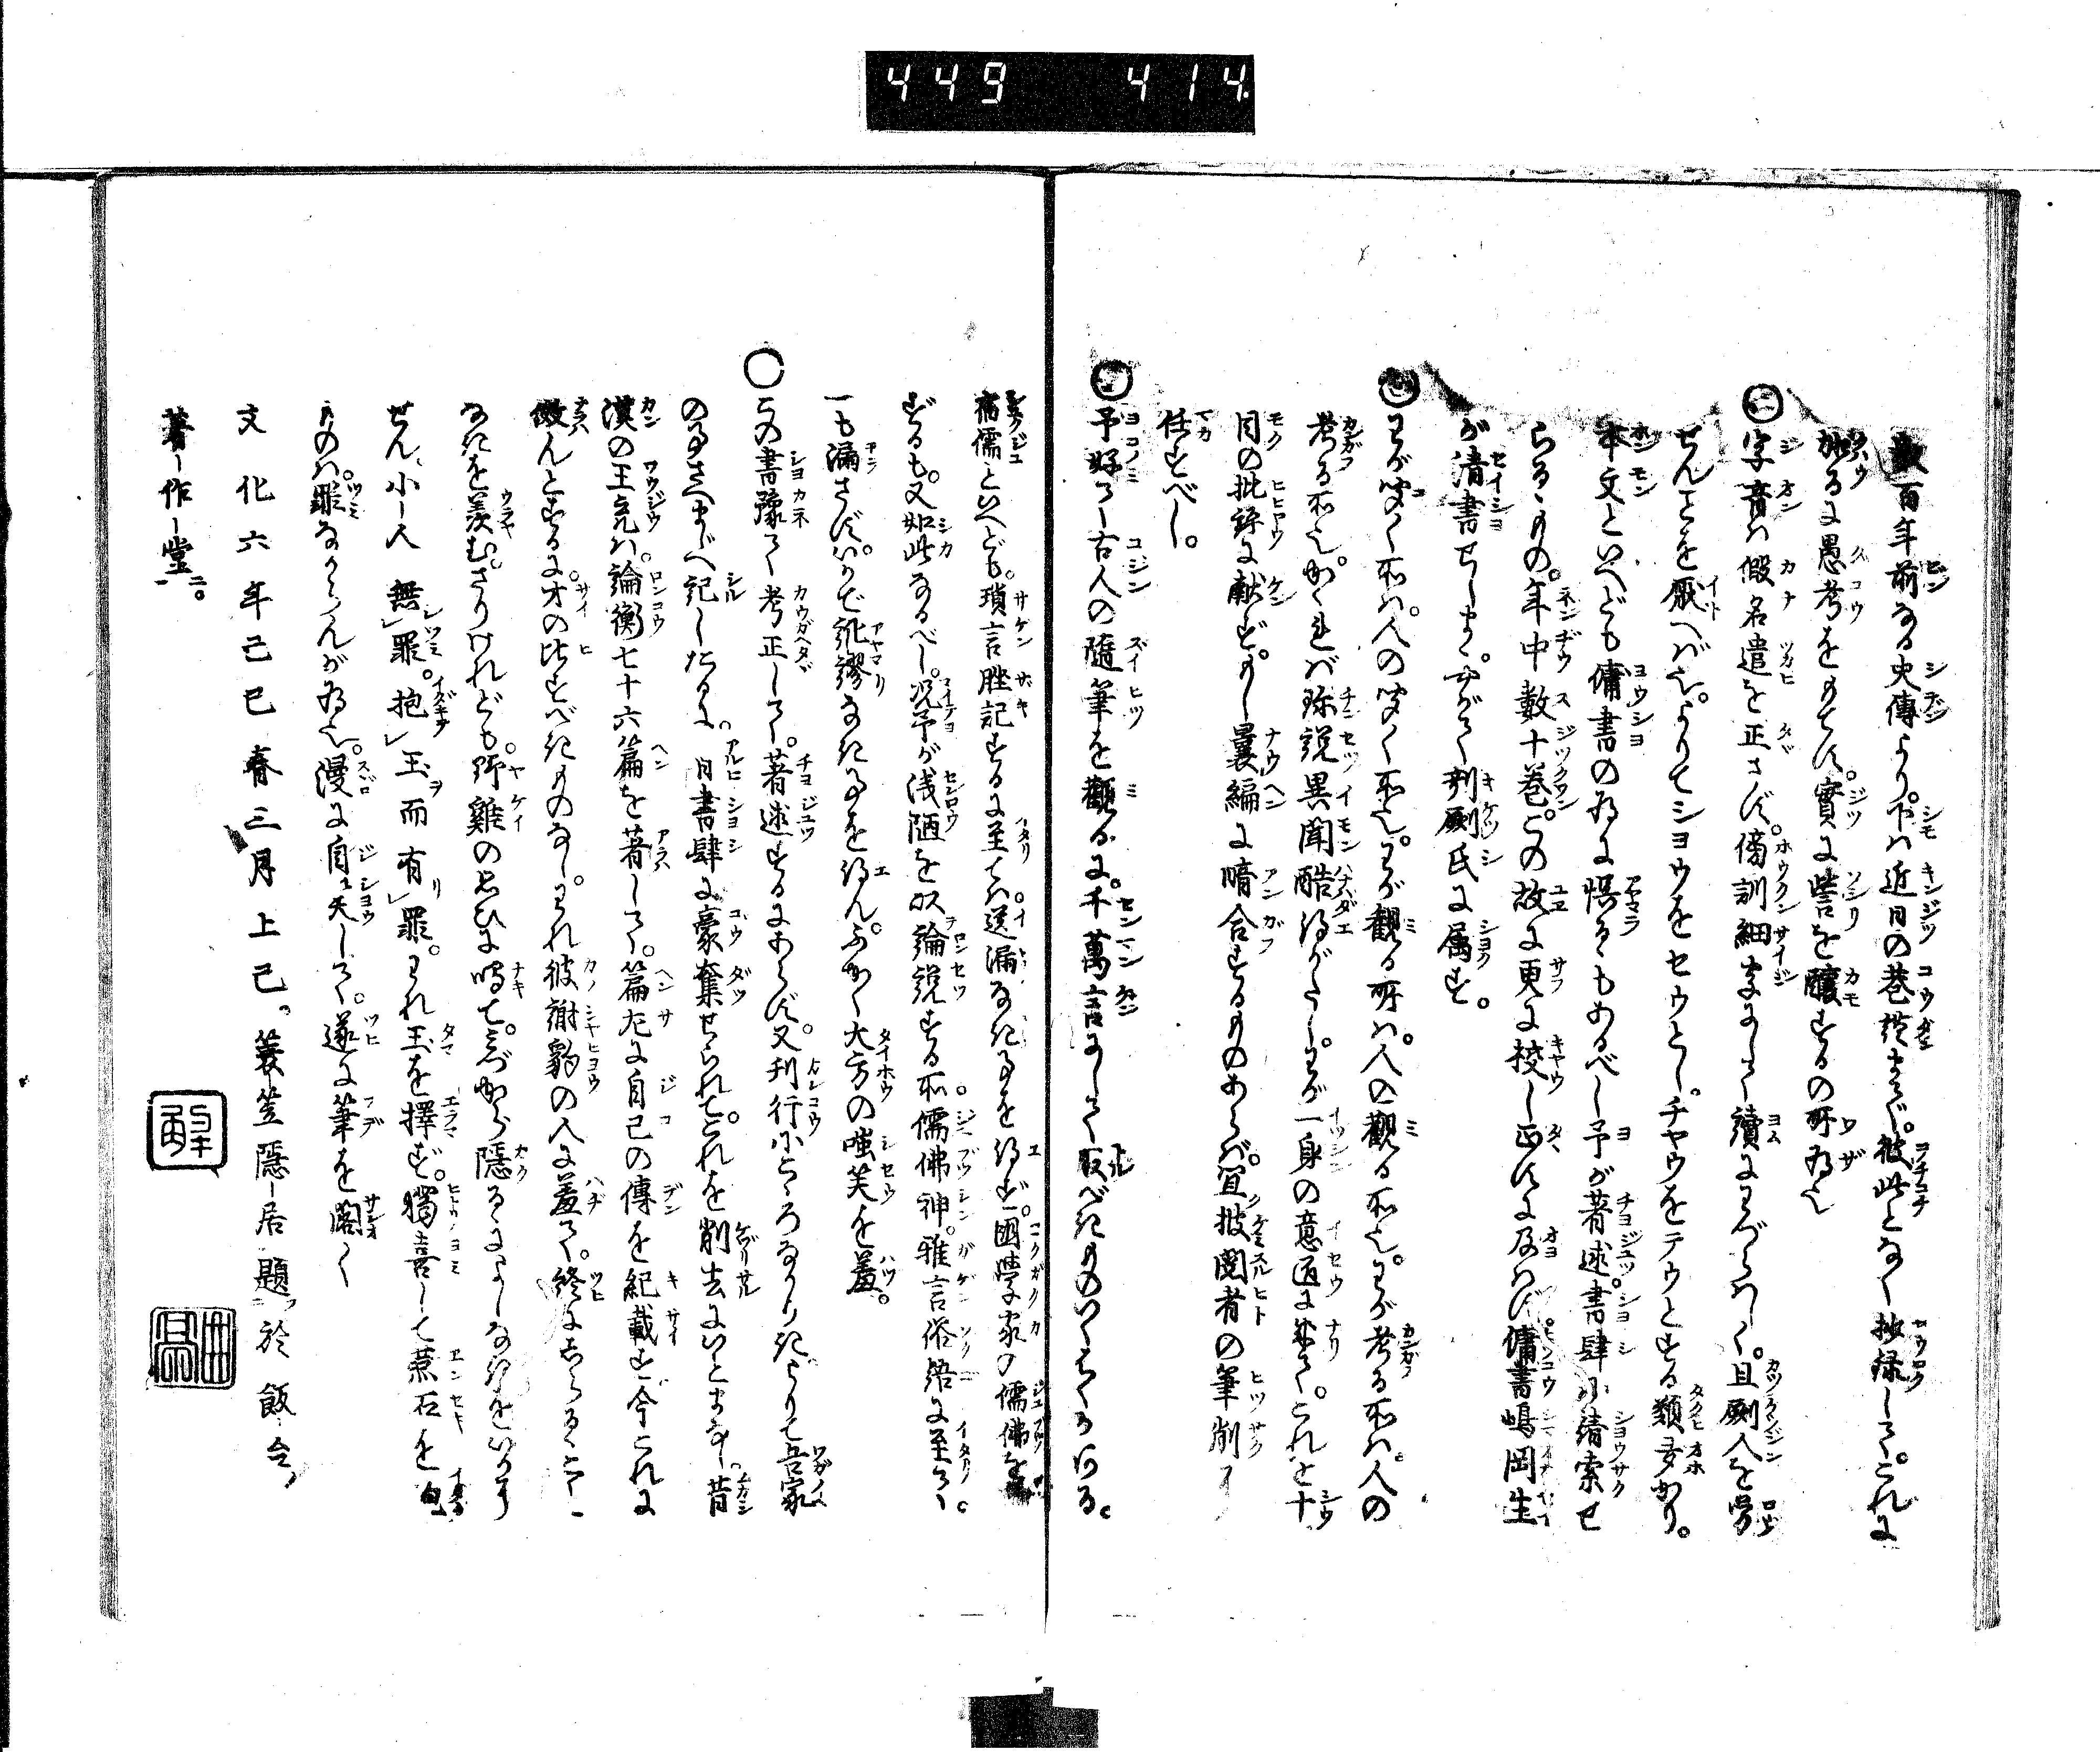 449 414
數百年前なる史傳より。下は近日の巷談まで。彼此となく抄録して。これに
加るに愚考をもてす。實に訾を釀するの所為也
字音は假名遣を正さず。傍訓細字にして讀にわづらはしく。且剞人を勞
せんことを厭へば也。よりてシヨウをセウとし。チヤウをテウとする類多かり。
本文といへども傭書の為に悞るゝもあるべし予が著述。書肆に請索せ
らるゝもの。年中數十卷。この故に更に挍し正すに及はず傭書嶋岡生
が清書せしまゝ。やがて剞劂氏に属す。
わが聞く所は。人の聞く所也。わが觀る所は。人の觀る所也。わが考る所は。人の
考る所也。かゝれば珎説異聞酷得がたし。わが一身の意匠に成て。これを十
目の批評に獻ず。もし曩編に暗合するものあらば。宜披閲者の筆削に
任すべし。
予好て古人の隨筆を觀るに。千萬言にして取べきものいくらくかある。
宿儒といへども。瑣言脞記するに至ては。遺漏なきことを得ず。國學家の儒佛を
ずるも。又如此なるべし。况予が浅陋を以論説する所。儒佛神。雅言俗語に至て。
一も漏さず。いかで訛謬なきことを得ん。ふかく大方の嗤笑を羞。
〇この書豫て考正して。著述するにあらず。又刊行にこゝろなかりき。よりて吾家
の事さへまじへ記したるに。一日書肆に豪奪せられて。これを削去にいとまなし。昔
漢の王充は。論衡七十六篇を著して。篇尾に自己の傳を紀載す。今これに
傚んとするに。才の比すべきものなし。われ彼謝豹の人に羞て。終にあらるゝこと
なきを羨む。さりけれども。野雞の思ひに鳴て。みづから隱るゝによしなきをいかに
せん。小人無罪。抱玉而有罪。われ玉を擇ず。獨喜して燕石を
ものは。罪なからんが為也。漫に自笑して。遂に筆を閣く
文化六年己巳春三月上巳。簑笠隱居題於飯台
著作堂。